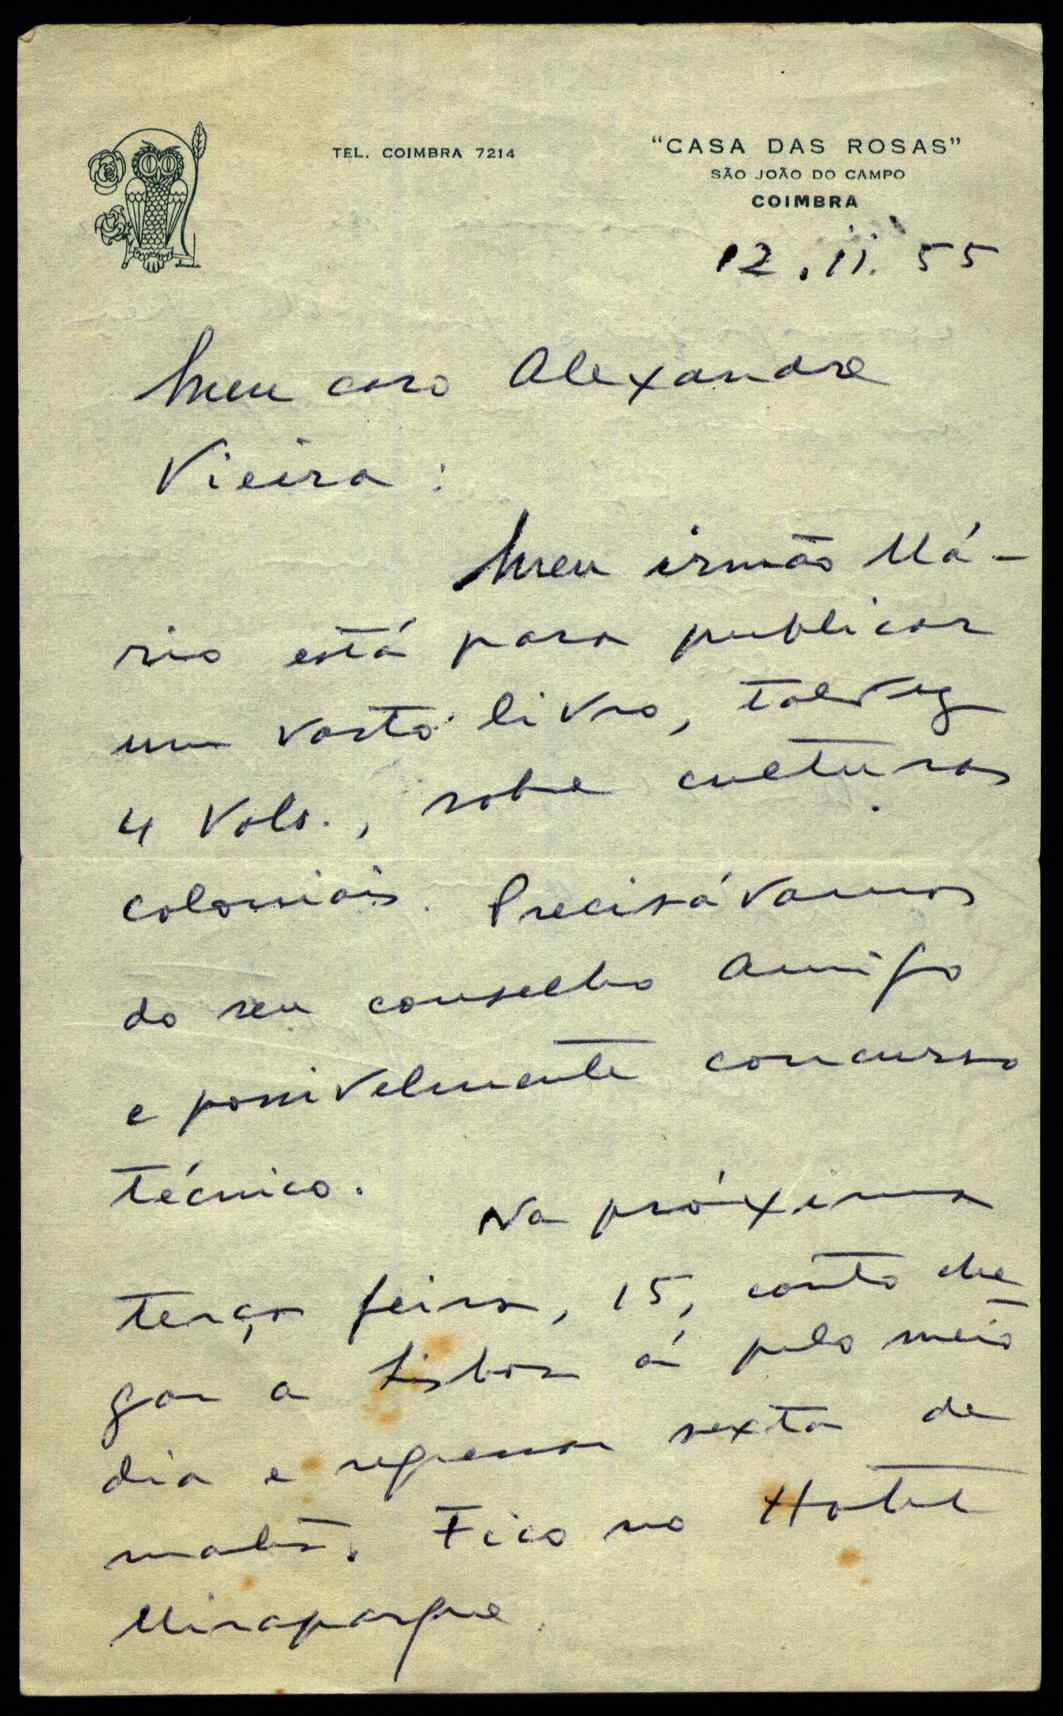 TEL. COIMBRA 7214
"CASA DAS ROSAS"
SÃO JOÃO DO CAMPO
COIMBRA
12. ii. 55
Meu caro Alexandre
Vieira:
Meu irmão Má-
rio está para publicar
um vasto livro, talvez
4 Vols., sobre culturas
coloniais. Precisávamos
do seu conselho amigo
e possivelmente concurso
técnico.
Na próxima
terça feira, 15, conto che
gar a Lisboa aí pelo meio
dia e regressar sexta de
manhã. Fico no Hotel
Miraparque.